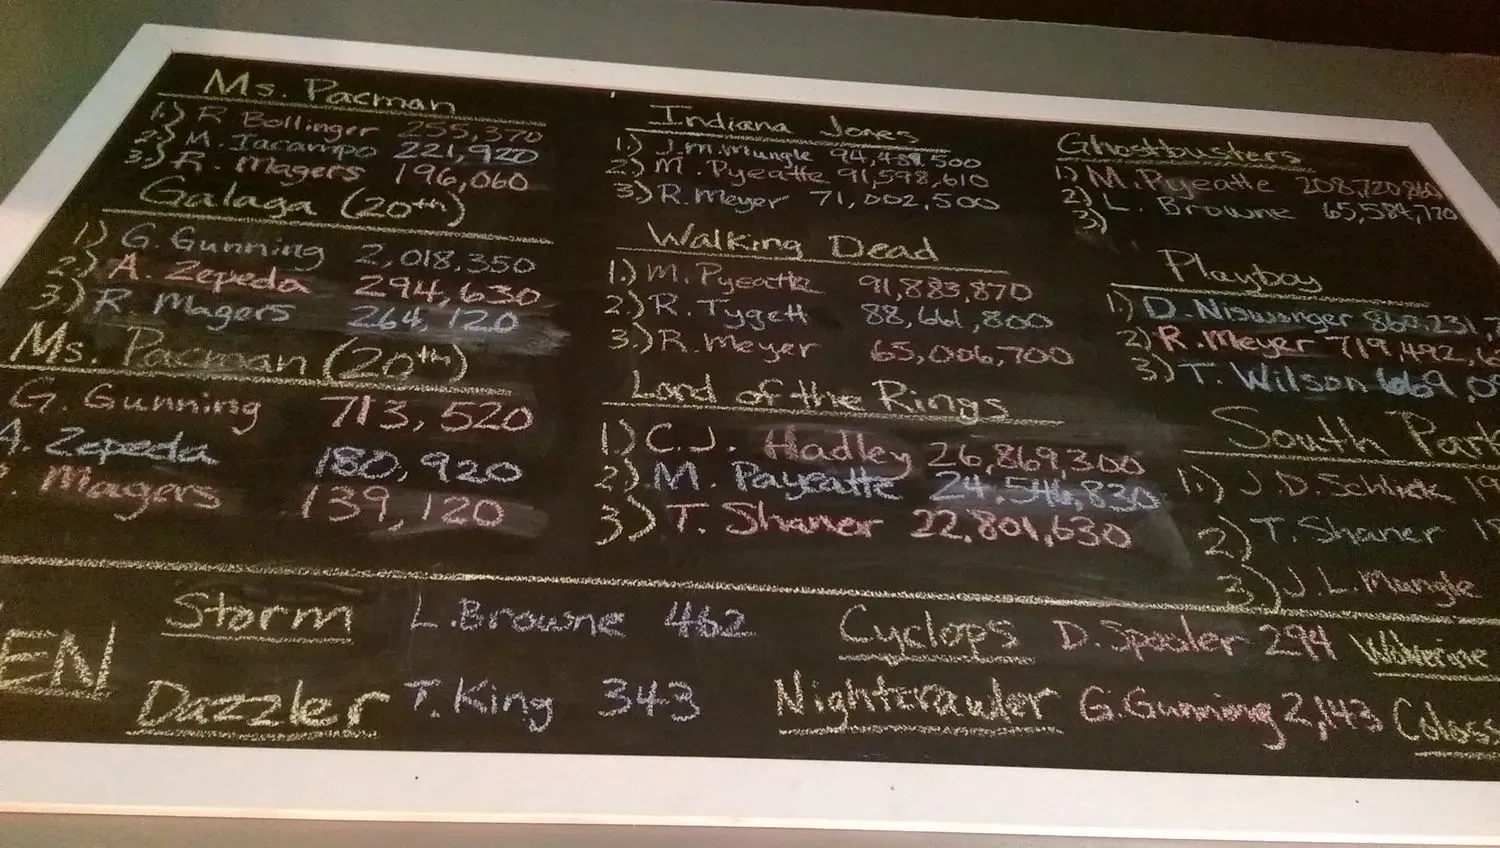 Ms. Pacman
1.) R Bollinger 255,370
2.) M. Iacampo 221,920
3.) R. Magers 196,060
Galaga (20th)
1.) G. Gunning 2,018,350
2.) A. Zepeda 294,630
3.) R. Magers 264,120
Ms. Pacman (20th)
G. Gunning 713,520
A. Zepeda 180,920
. Magers 139,120
Indiana Jones
1.) J.M. 500
2.) M. Pyeatte 91,598,610
3.) R. Meyer 71,002,500
Walking Dead
1.) M. Pyeatte 91,883,870
2.) R. Tygett 88,661,800
3.) R. Meyer 65,006,700
Lord of the Rings
1.) C.J. Hadley 26,869,300
2.) M. Payeatte 24,546,830
3.) T. Shaner 22,801,630
Ghostbusters
1.) M. Pyeatte 208,720,860
2.) L. Browne 65,584,770
3)
Playboy
1.) D. Niswonger
2) R. Meyer 719,492,
3.) T. Wilson 669,0
South Park
1.) J.D. Schlick 19
2.) T. Shaner 18
3.) J.L. Mangle
EN
Storm L. Browne 462
Dazzler T. King 343
Cyclops D. Spasler 294
Nightcrawler G. Gunning 2,143
Wolverine
Coloss